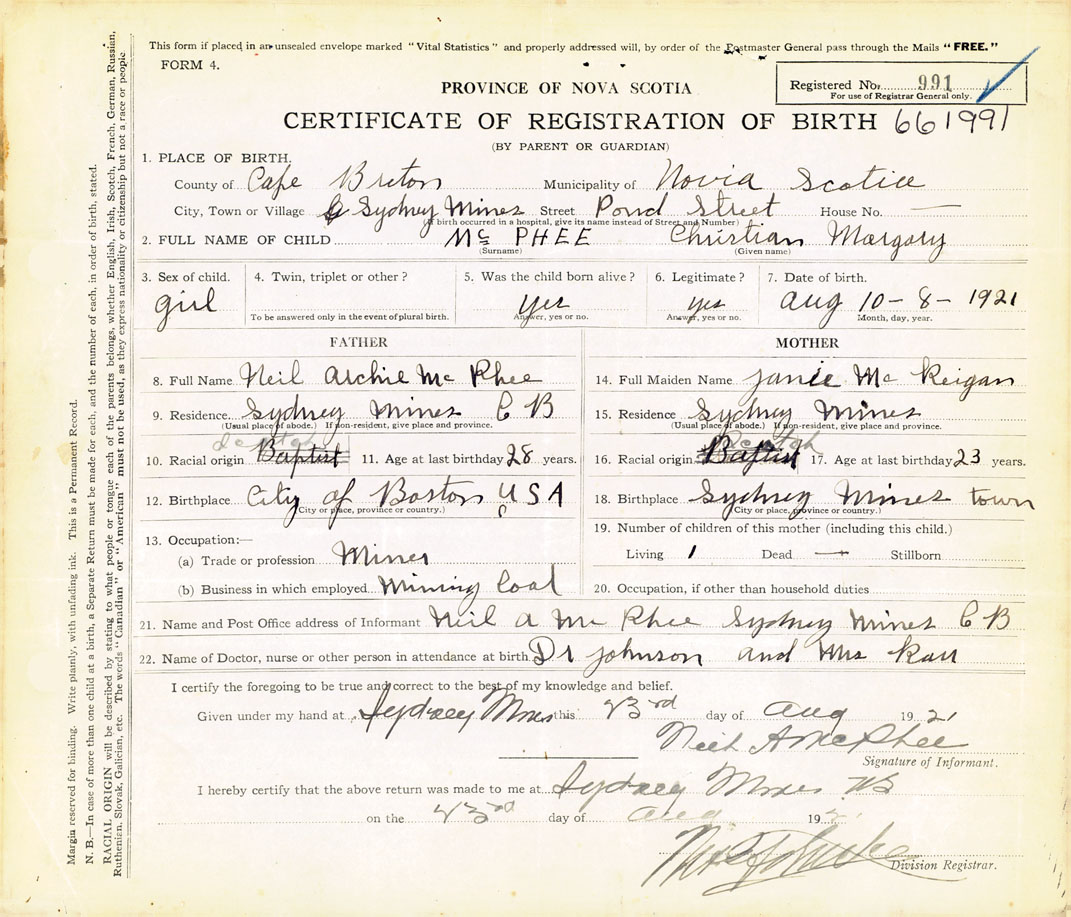 This form if placed in an unsealed envelope marked "Vital Statistics" and properly addressed will, by order of the Postmaster General pass through the Mails "FREE."
FORM 4.
Registered No. 991
For use of Registrar General only.
PROVINCE OF NOVA SCOTIA
CERTIFICATE OF REGISTRATION OF BIRTH 661991
(BY PARENT OR GUARDIAN)
1. PLACE OF BIRTH.
County of Cape Breton Municipality of Novia Scotia
City, Town or Village Sydney Mines Street Pond Street House No. —
(If birth occurred in a hospital, give its name instead of Street and Number)
2. FULL NAME OF CHILD Mc PHEE Christian Margory
(Surname) (Given name)
3. Sex of child. 4. Twin, triplet or other? 5. Was the child born alive? 6. Legitimate? 7. Date of birth.
girl yes yes aug 10-8-1921
To be answered only in the event of plural birth. Answer, yes or no. Answer, yes or no. Month, day, year.
FATHER MOTHER
8. Full Name Neil Archie Mc Phee 14. Full Maiden Name Janie Mc Keigan
9. Residence Sydney Mines C B 15. Residence Sydney Mines
(Usual place of abode.) If non-resident, give place and province. (Usual place of abode.) If non-resident, give place and province.
Scotch Scotch
10. Racial origin Baptist 11. Age at last birthday 28 years. 16. Racial origin Baptist 17. Age at last birthday 23 years.
12. Birthplace City of Boston U S A 18. Birthplace Sydney Mines town
(City or place, province or country.) (City or place, province or country.)
13. Occupation:— 19. Number of children of this mother (including this child.)
(a) Trade or profession Miner Living 1 Dead — Stillborn
(b) Business in which employed Mining Coal 20. Occupation, if other than household duties
21. Name and Post Office address of Informant Neil A Mc Phee Sydney Mines C B
22. Name of Doctor, nurse or other person in attendance at birth Dr Johnson and Mrs Karr
I certify the foregoing to be true and correct to the best of my knowledge and belief.
Given under my hand at Sydney Mines this 23rd day of Aug 1921
Neil A McPhee
Signature of Informant.
I hereby certify that the above return was made to me at Sydney Mines
on the 23rd day of Aug 192
Division Registrar.
Margin reserved for binding. Write plainly, with unfading ink. This is a Permanent Record.
N. B.—In case of more than one child at a birth, a Separate Return must be made for each, and the number of each, in order of birth, stated.
RACIAL ORIGIN will be described by stating to what people or tongue each of the parents belongs, whether English, Irish, Scotch, French, German, Russian,
Ruthenian, Slovak, Galician, etc. The words "Canadian" or "American" must not be used, as they express nationality or citizenship but not a race or people